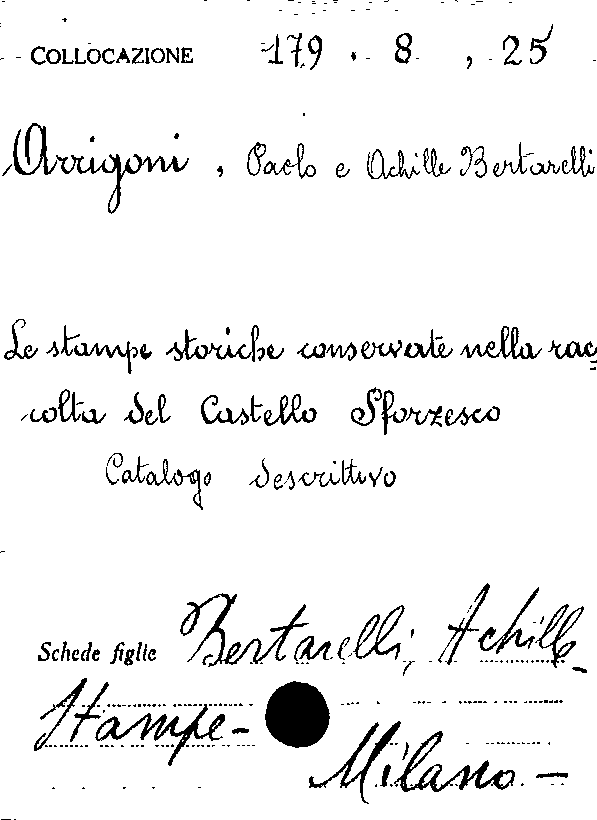 COLLOCAZIONE 179 . 8 , 25
Arrigoni , Paolo e Achille Bertarelli
Le stampe storiche conservate nella rac=
colta del Castello Sforzesco
Catalogo descrittivo
Schede figlie Bertarelli, Achille
Stampe -
Milano. -